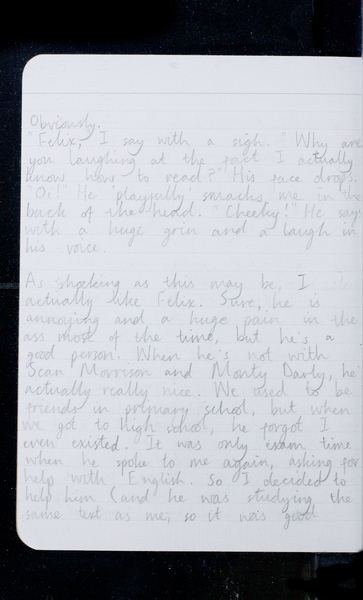 Obviously.
"Felix," I say with a sigh. "Why are
you laughing at the fact I actually
know how to read?" His face drops.
"Oi!" He 'playfully' smacks me in the
back of the head. "Cheeky!" He says
with a huge grin and a laugh in
his voice.
As shocking as this may be, I
actually like Felix. Sure, he is
annoying and a huge pain in the
ass most of the time, but he's a
good person. When he's not with
Sean Morrison and Monty Darly, he's
actually really nice. We used to be
friends in primary school, but when
we got to High school, he forgot I
even existed. It was only exam time
when he spoke to me again, asking for
help with English. So I decided to
help him (and he was studying the
same text as me, so it was good